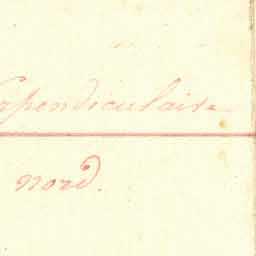 rpendiculaire
nord.